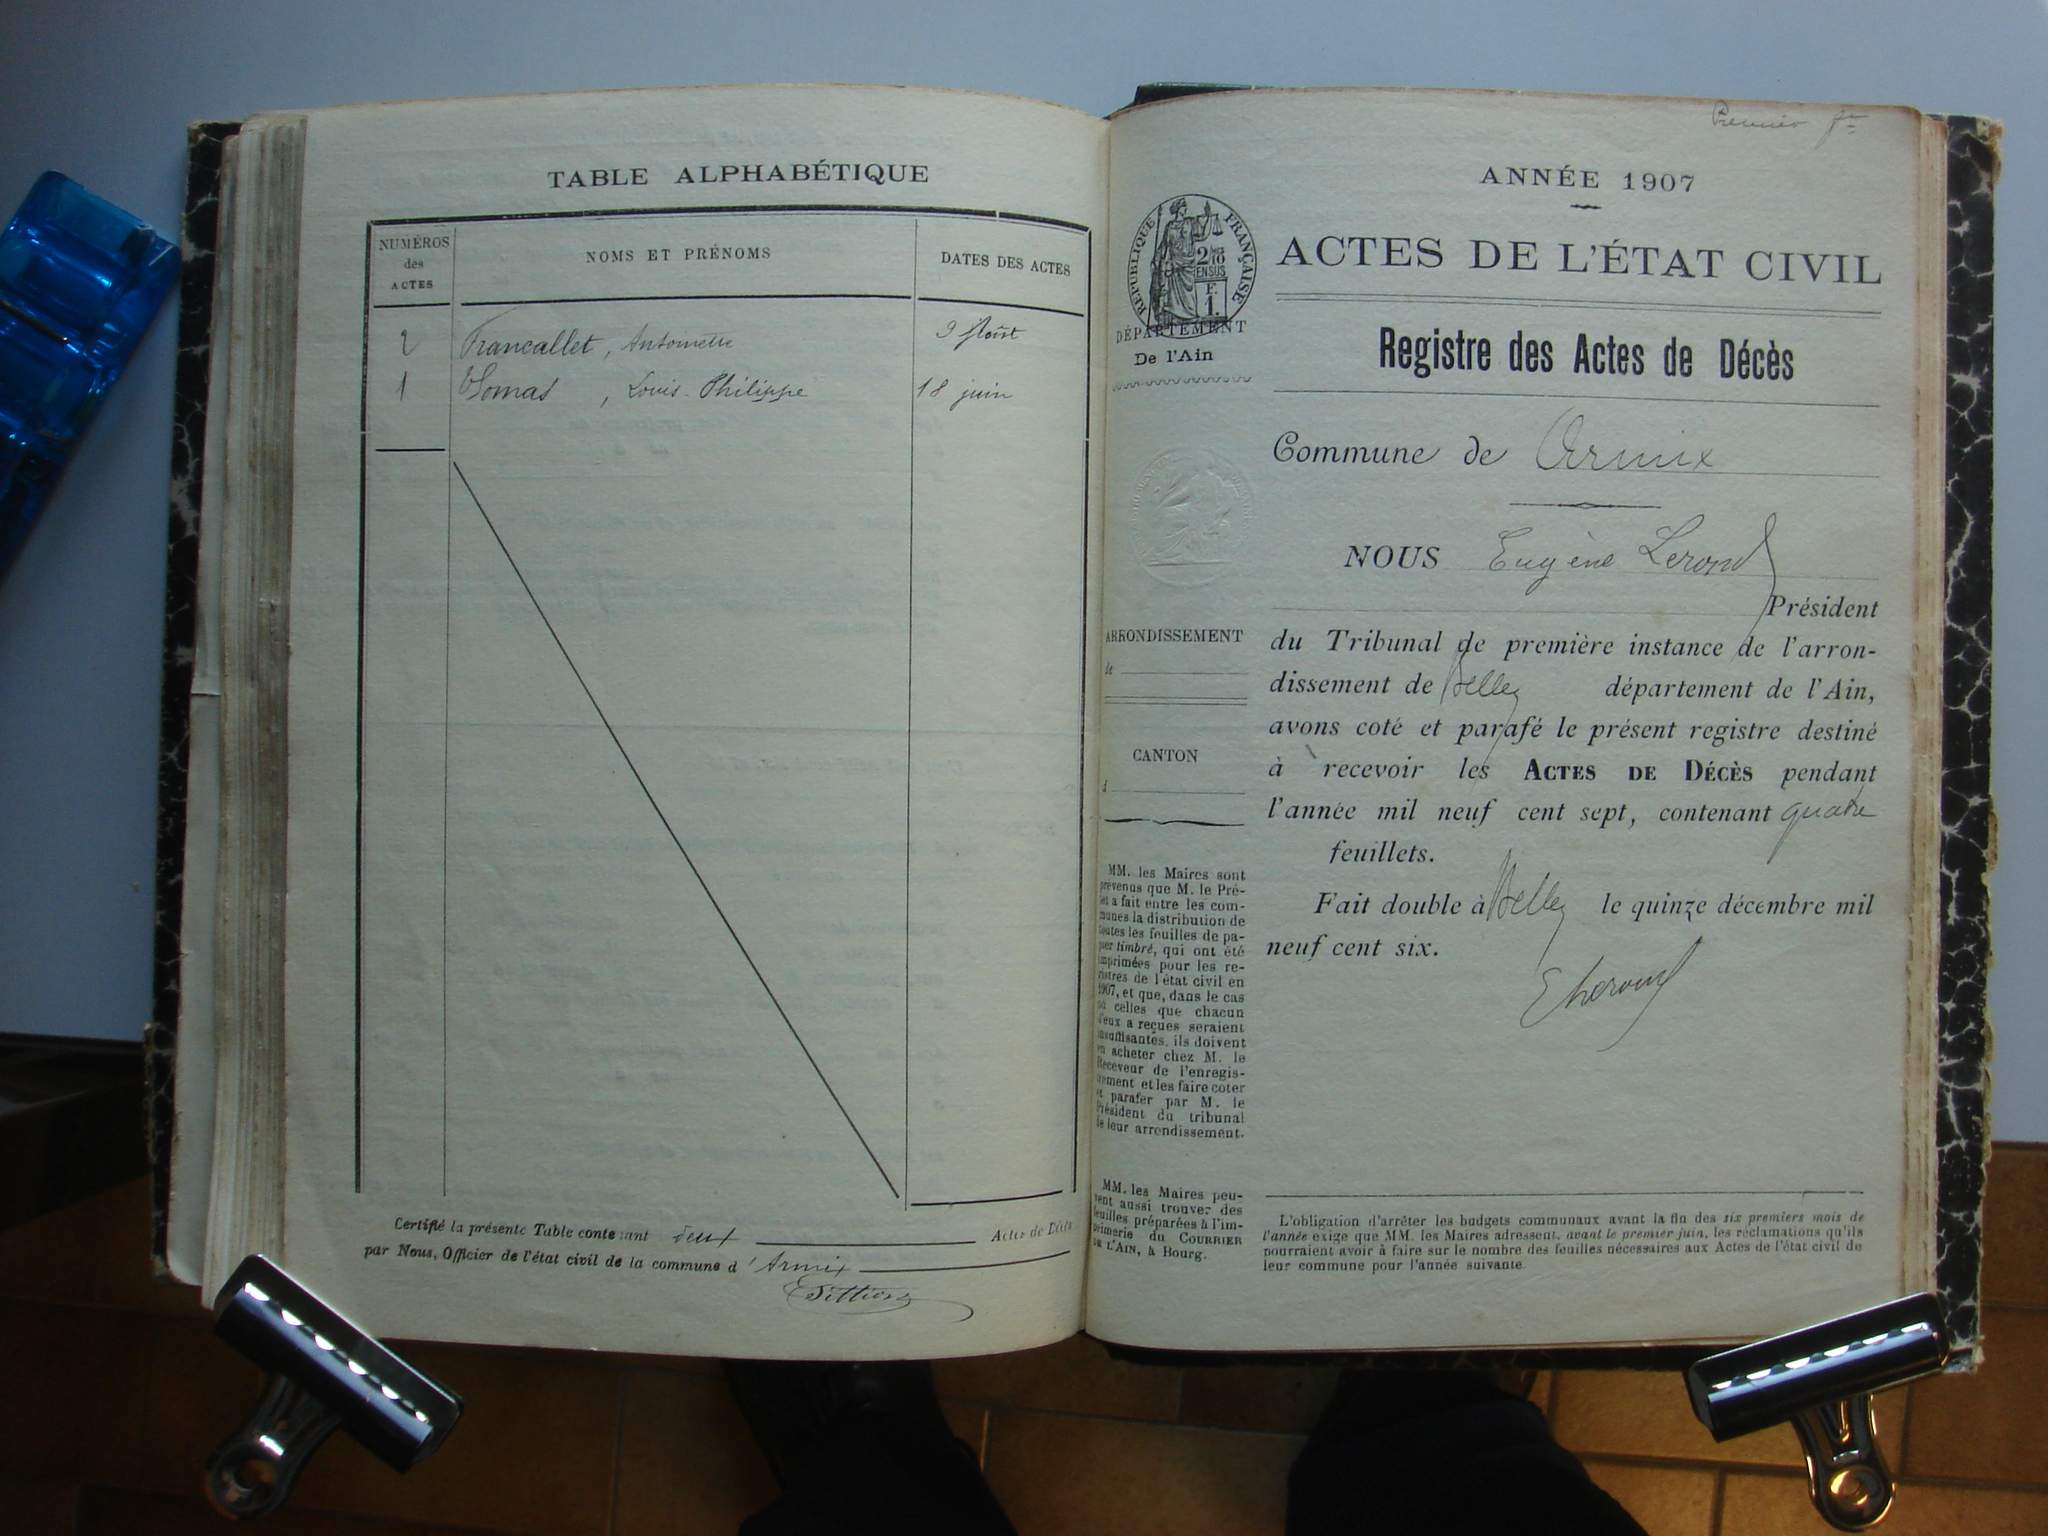 TABLE ALPHABÉTIQUE
NUMÉROS
des
ACTES
NOMS ET PRÉNOMS
DATES DES ACTES
2 Francallet, Antoinette 9 Août
1 , Louis-Philippe 18 juin
Certifié la présente Table contenant deux Actes de Décès
par Nous, Officier de l'état civil de la commune d'Armix
Premier
ANNÉE 1907
RÉPUBLIQUE FRANÇAISE
2/10
EN SUS
F.
1.
DÉPARTEMENT
De l'Ain
ACTES DE L'ÉTAT CIVIL
Registre des Actes de Décès
Commune de Armix
NOUS Eugène Lerond
Président
du Tribunal de première instance de l'arron-
dissement de Belley département de l'Ain,
avons coté et parafé le présent registre destiné
à recevoir les ACTES DE DÉCÈS pendant
l'année mil neuf cent sept, contenant quatre
feuillets.
Fait double à Belley le quinze décembre mil
neuf cent six.
ELerond
ARRONDISSEMENT
de
CANTON
d
MM. les Maires sont
prévenus que M. le Pré-
fet a fait entre les com-
munes la distribution de
toutes les feuilles de pa-
pier timbré, qui ont été
imprimées pour les re-
gistres de l'état civil en
1907, et que, dans le cas
où celles que chacun
d'eux a reçues seraient
insuffisantes, ils doivent
en acheter chez M. le
Receveur de l'enregis-
trement et les faire coter
et parafer par M. le
Président du tribunal
de leur arrondissement.
MM. les Maires peu-
vent aussi trouver des
feuilles préparées à l'im-
primerie du COURRIER
DE L'AIN, à Bourg.
L'obligation d'arrêter les budgets communaux avant la fin des six premiers mois de
l'année exige que MM. les Maires adressent, avant le premier juin, les réclamations qu'ils
pourraient avoir à faire sur le nombre des feuilles nécessaires aux Actes de l'état civil de
leur commune pour l'année suivante.